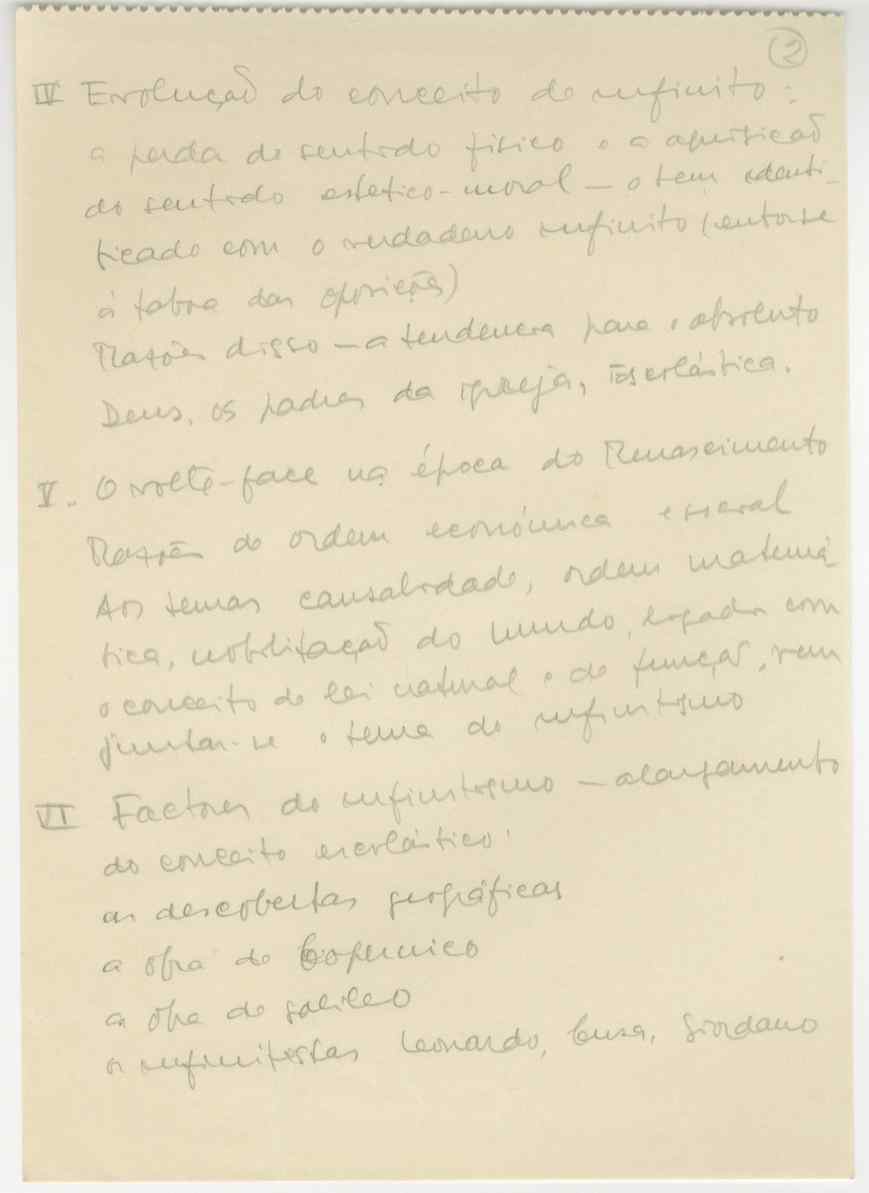 (2)
IV Evolução do conceito de infinito:
a perda do sentido físico e a aquisição
do sentido estético-moral — o bem identi-
ficado com o verdadeiro infinito (junta-se
à tábua das oposições)
Razões disso — a tendência para o absoluto
Deus, os padres da igreja, Escolástica.
V. O volte-face na época do Renascimento
Razões de ordem económica e social
Aos temas causalidade, ordem matemá
tica, mobilização do mundo, ligados com
o conceito de lei natural e de função, vem
juntar-se o tema do infinitismo
VI Factores do infinitismo — alargamento
do conceito escolástico:
as descobertas geográficas
a obra de Copernico
a obra de Galileo
os infinitistas Leonardo, Cusa, Giordano